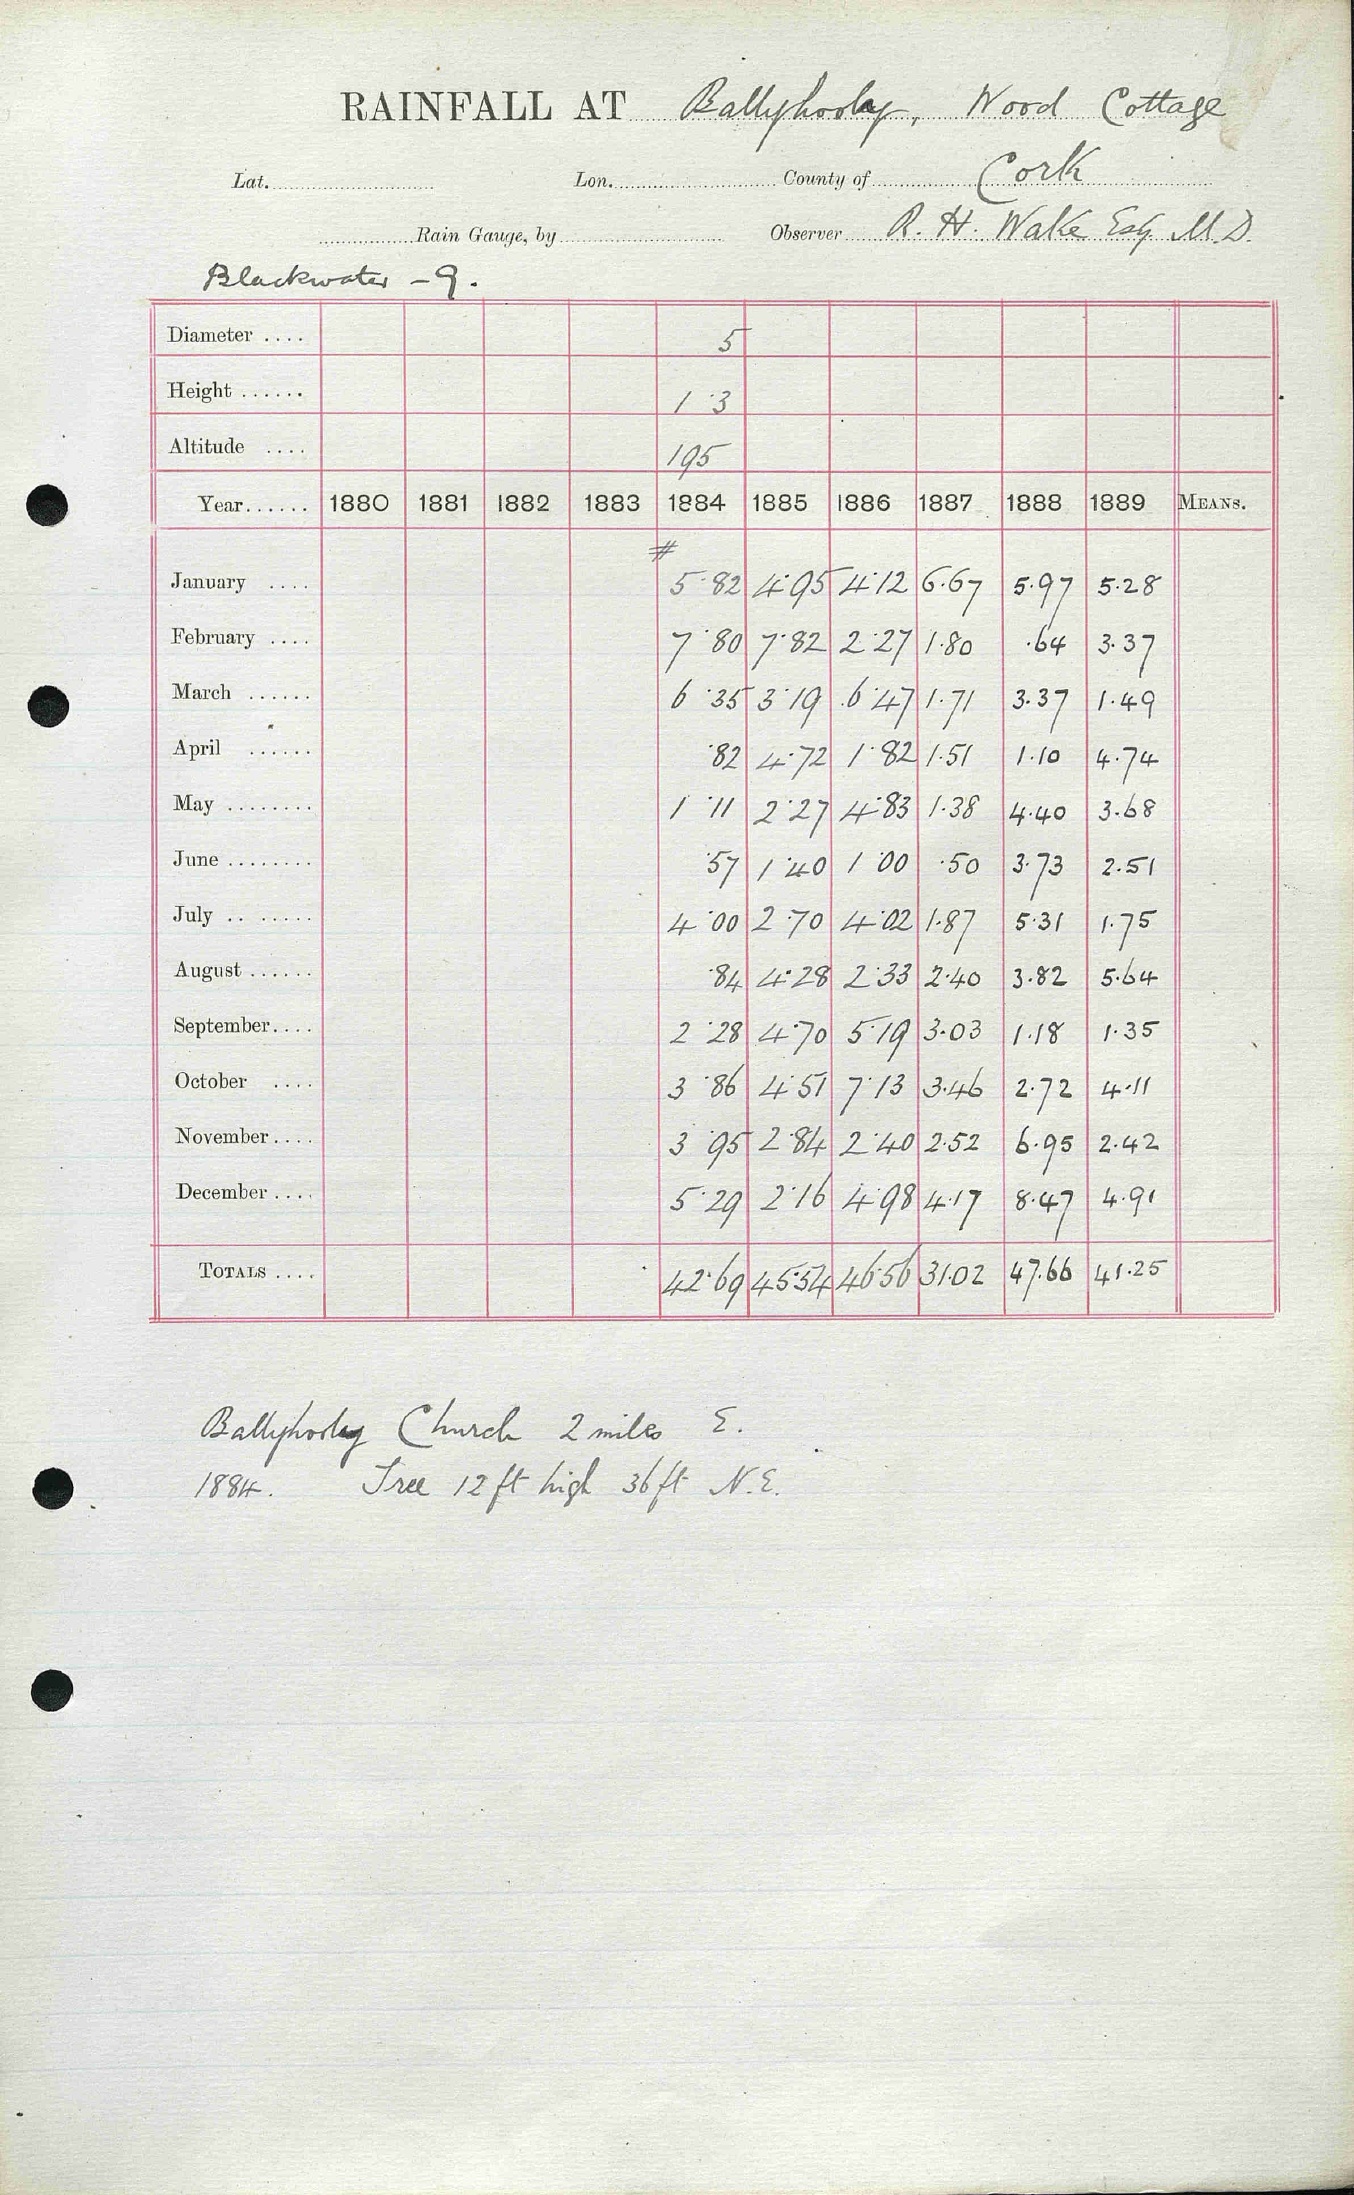 RAINFALL AT Ballyhooly, Wood Cottage
Lat. Lon. County of Cork
Rain Gauge, by Observer R. H. Wake Esq. M.D.
Blackwater - 9.
Diameter .... 5
Height ...... 1 · 3
Altitude .... 195
Year...... 1880 1881 1882 1883 1884 1885 1886 1887 1888 1889 MEANS.
#
January .... 5·82 4·95 4·12 6.67 5.97 5.28
February .... 7·80 7·82 2·27 1.80 .64 3.37
March ...... 6·35 3·19 6·47 1.71 3.37 1.49
April ...... ·82 4·72 1·82 1.51 1.10 4.74
May ........ 1·11 2·27 4·83 1.38 4.40 3.68
June ........ ·57 1·40 1·00 .50 3.73 2.51
July .. ...... 4·00 2·70 4·02 1.87 5.31 1.75
August ...... ·84 4·28 2·33 2.40 3.82 5.64
September.... 2·28 4·70 5·19 3.03 1.18 1.35
October .... 3·86 4·51 7·13 3.46 2.72 4.11
November.... 3·95 2·84 2·40 2.52 6.95 2.42
December .... 5·29 2·16 4·98 4.17 8.47 4.91
TOTALS .... 42·69 45·54 46·56 31.02 47.66 41.25
Ballyhooly Church 2 miles E.
1884. Tree 12 ft high 36 ft N.E.